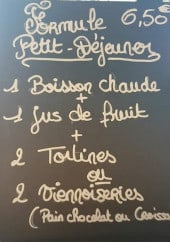 Formule 6,50 €
Petit-Déjeuner
1 Boisson chaude
+
1 Jus de fruit
+
2 Tartines
ou
2 Viennoiseries
(Pain chocolat ou Croiss